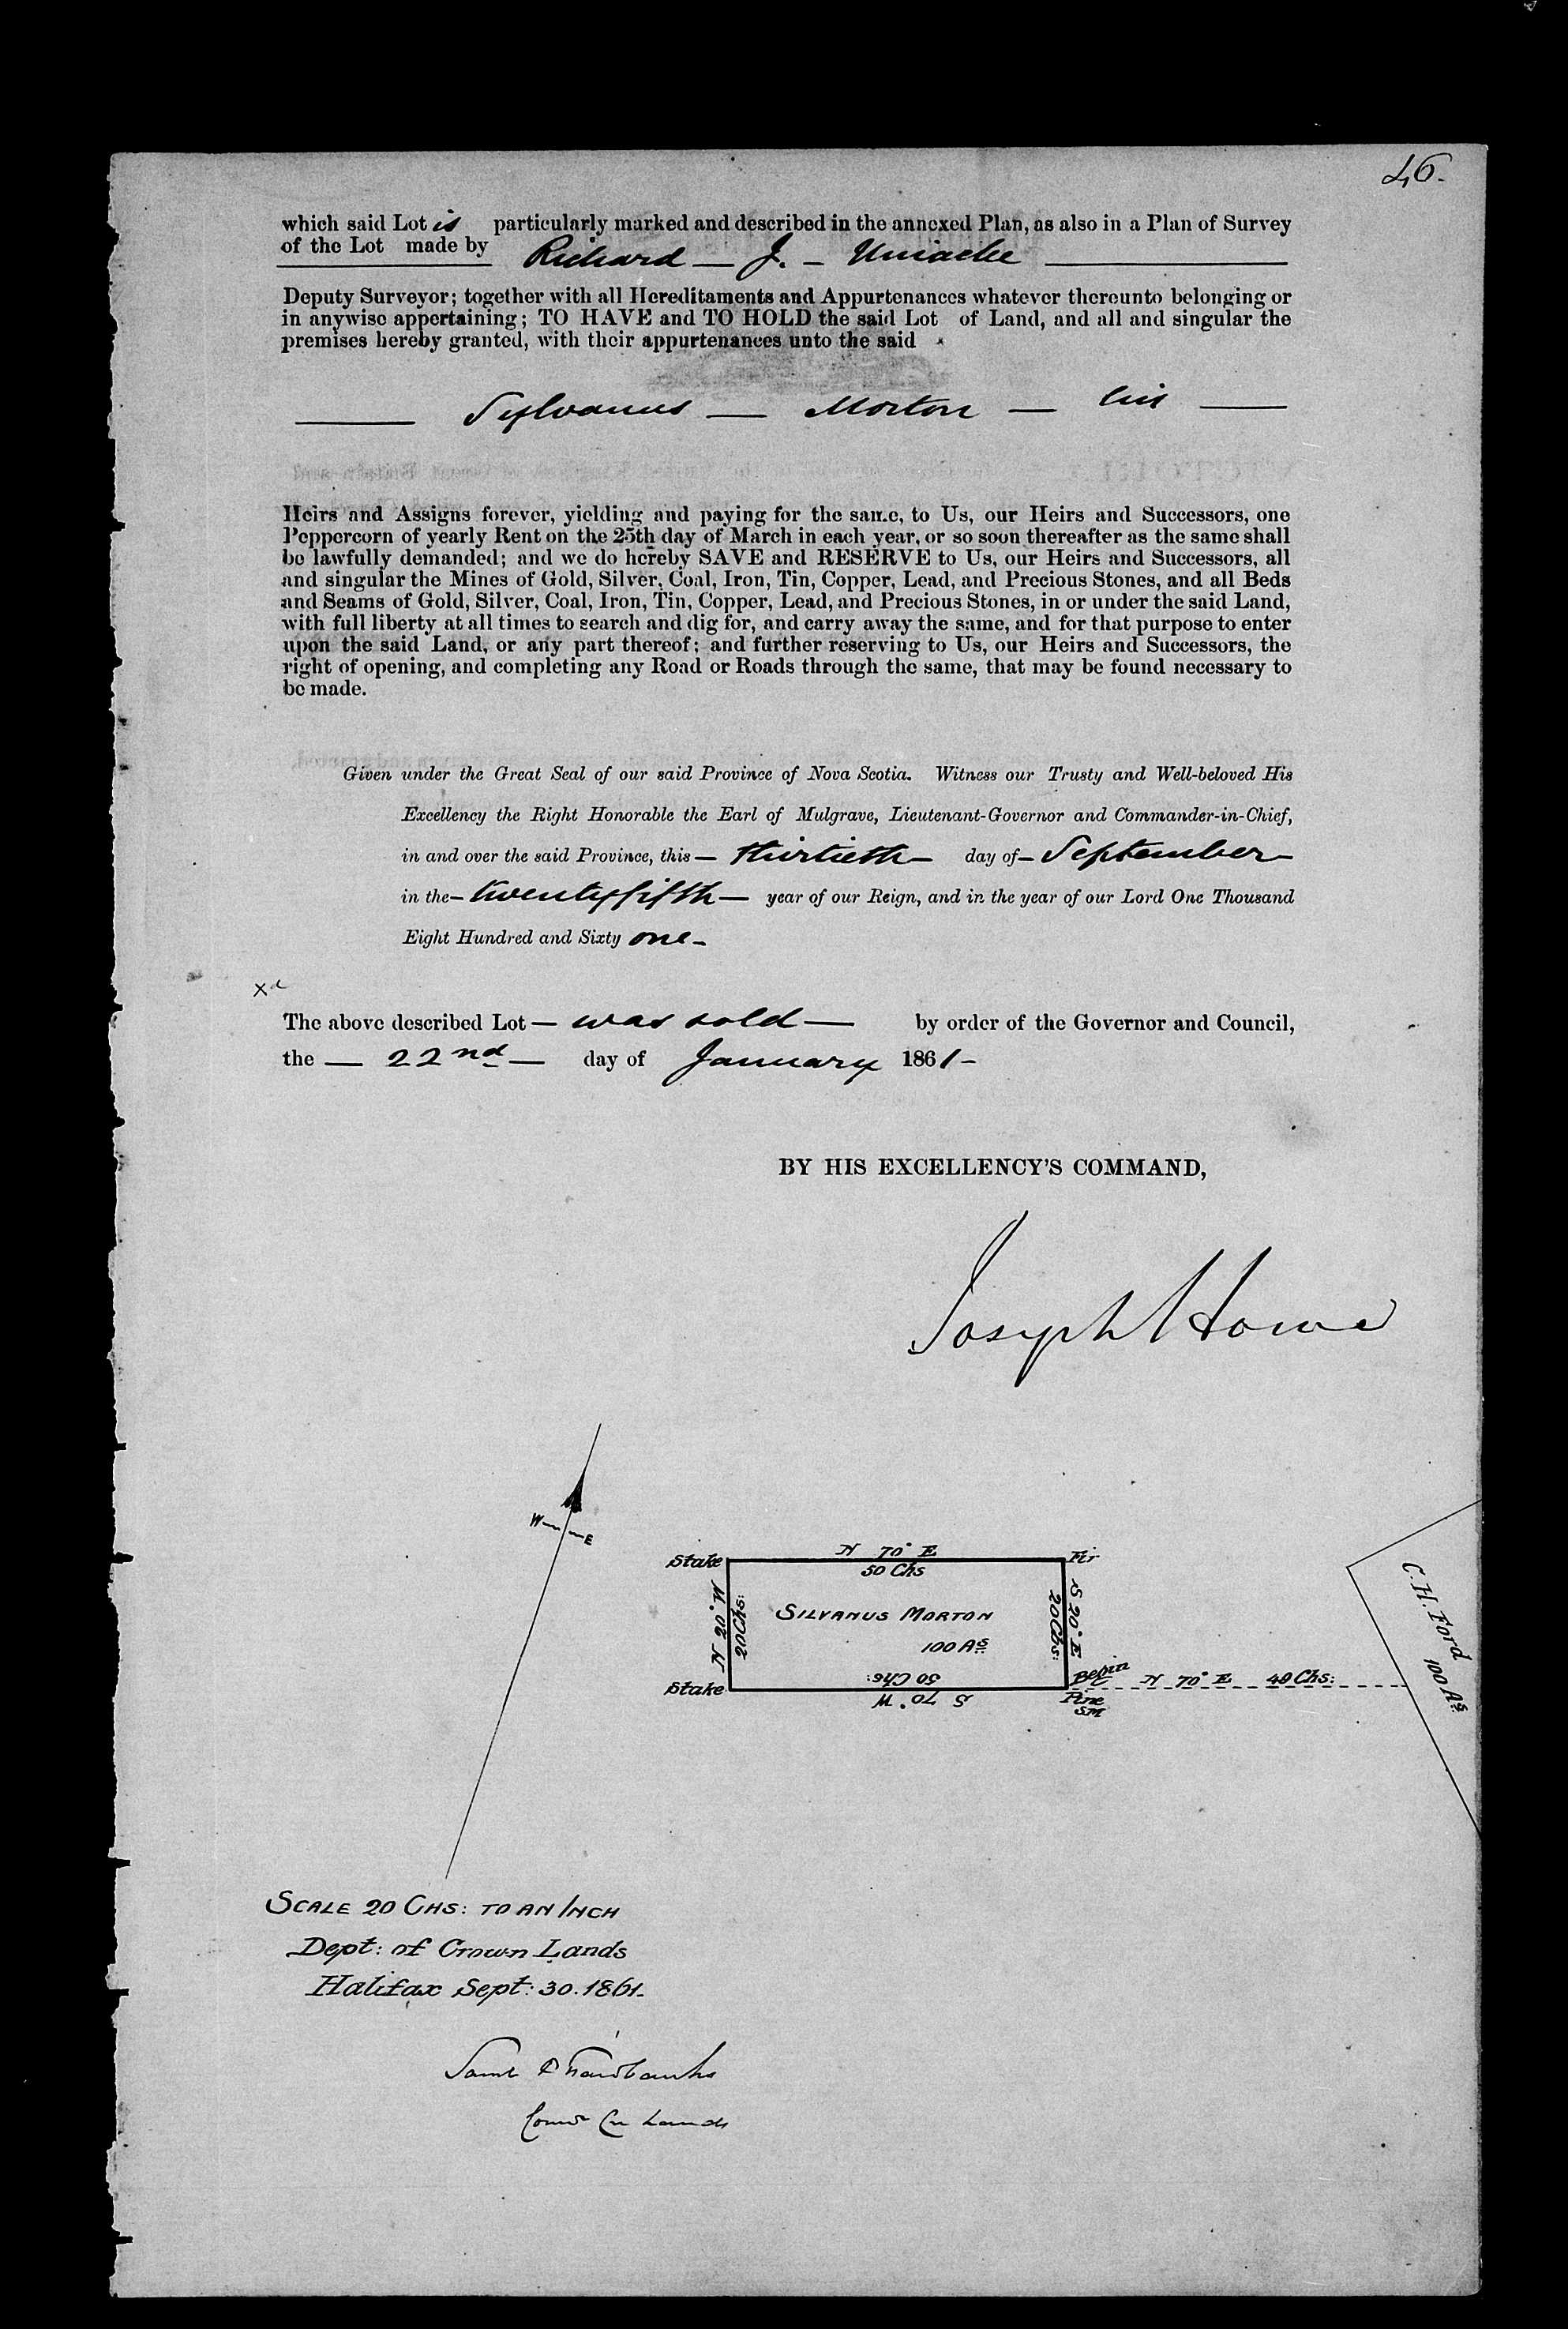 46.
which said Lot is particularly marked and described in the annexed Plan, as also in a Plan of Survey
of the Lot made by Richard — J. — Uniacke
Deputy Surveyor; together with all Hereditaments and Appurtenances whatever thereunto belonging or
in anywise appertaining; TO HAVE and TO HOLD the said Lot of Land, and all and singular the
premises hereby granted, with their appurtenances unto the said
— Sylvanus — Morton — his —
Heirs and Assigns forever, yielding and paying for the same, to Us, our Heirs and Successors, one
Peppercorn of yearly Rent on the 25th day of March in each year, or so soon thereafter as the same shall
be lawfully demanded; and we do hereby SAVE and RESERVE to Us, our Heirs and Successors, all
and singular the Mines of Gold, Silver, Coal, Iron, Tin, Copper, Lead, and Precious Stones, and all Beds
and Seams of Gold, Silver, Coal, Iron, Tin, Copper, Lead, and Precious Stones, in or under the said Land,
with full liberty at all times to search and dig for, and carry away the same, and for that purpose to enter
upon the said Land, or any part thereof; and further reserving to Us, our Heirs and Successors, the
right of opening, and completing any Road or Roads through the same, that may be found necessary to
be made.
Given under the Great Seal of our said Province of Nova Scotia. Witness our Trusty and Well-beloved His
Excellency the Right Honorable the Earl of Mulgrave, Lieutenant-Governor and Commander-in-Chief,
in and over the said Province, this — thirtieth — day of — September —
in the — twenty fifth — year of our Reign, and in the year of our Lord One Thousand
Eight Hundred and Sixty one —
The above described Lot — was sold — by order of the Governor and Council,
the — 22nd — day of January 1861 —
BY HIS EXCELLENCY'S COMMAND,
Joseph Howe
W E
Stake N 70° E Fir
50 Chs
C. H. Ford
100 As
N 20° W
20 Chs:
SILVANUS MORTON
100 As
S 20° E
20 Chs:
50 Chs:
S 70° W
Stake
Begin
Pine
SM
N 70° E 40 Chs:
SCALE 20 CHS: TO AN INCH
Dept: of Crown Lands
Halifax Sept: 30. 1861.
Saml P Fairbanks
Comr Cn Lands